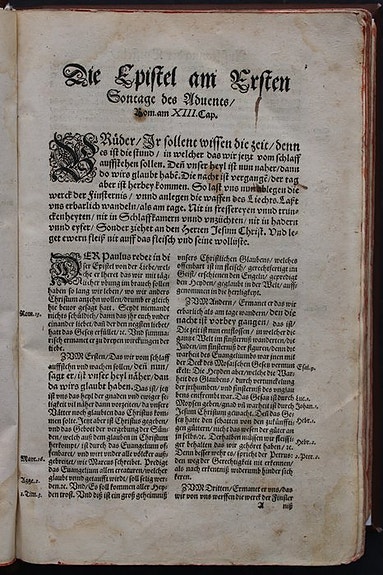 Die Epistel am Ersten
Sontage des Aduents/
Rom. am XIII. Cap.
BRüder/ Jr sollent wissen die zeit/ denn
es ist die stund/ in welcher das wir jetzt vom schlaff
auffstehen sollen. Den vnser heyl ist nun naher/ dann
do wirs glaubt habē. Die nacht ist vergangē/ der tag
aber ist herbey kommen. So last vns nun ablegen die
werck der Finsternis/ vnnd anlegen die waffen des Liechts. Laßt
vns erbarlich wandeln/ als am tage. Nit in fressereyen vnnd trun-
ckenheyten/ nit in Schlaffkamern vnnd vnzüchten/ nit in hadern
vnnd eyfer/ Sonder ziehet an den Herren Jesum Christ. Vnd le-
get ewern fleiß nit auff das fleisch vnd seine wolluste.
DER Paulus redet in di
ser Epistel von der Liebe/ wel-
che er theret das wir mit täg-
licher vbung im brauch sollen
haben so lang wir leben/ wo wir anders
Christum anzehn wollen/ drumb er gleich
hie beuor gesagt hat. Seydt niemandt
nichts schuldich/ dann das jhr euch vnder
einander liebet/ dañ der den negsten liebet/
hatt das Gesetz erfüllet/ ꝛc. Vnd summa-
risch ermanet er zu dreyen wirckungen der
liebe.
ZVM Ersten/ Das wir vom schlaff
auffstehen vnd wachen sollen/ deñ nun/
sagt er/ ist vnser heyl näher/ dan
da wirs glaubt haben. Das ist/ jtz
ist vns das heyl der gnaden vnd ewiger se-
ligkeit vil näher dann vorzeiten/ da vnsere
Vätter noch glaubten das Christus kom-
men solte. Jetzt aber ist Christus gegeben/
vnd das Gebot der vergebung der Sün-
den/ welch auß dem glauben in Christum
herkompt/ ist durch das Euangelium of-
fenbaret/ vnd wirt vnder alle völcker auß-
gebreitet/ wie Marcus schreibet. Predigt
das Euangelium allen creaturen/ welcher
glaubt vnnd getaufft wird/ soll selig wer-
den. ꝛc. Vnd/ Es soll kommen aller Hey-
den trost. Vnd diß ist ein groß geheimniß
vnsers Christlichen Glaubens/ welches
offenbart ist im fleisch/ gerechtfertigt im
Geist/ erschienen den Engeln/ geprediget
den Heyden/ geglaubt in der Welt/ auff-
genommen in die herligkeyt.
ZVM Andern/ Ermanet er das wir
erbarlich als am tage wandern/ den die
nacht ist vorbey gangen/ das ist/
Die zeit ist nun entflossen/ in welcher die
gantze Welt im finsterniß wanderten/ die
Juden/ im finsterniß der figuren/ denn die
warheit des Euangeliums was jnen mit
der Deck des Moysischen Gesetz vermum
ckelt: Die Heyden aber/ welche die War-
heit des Glaubens/ durch vertunckelung
der jrrthumben/ vnd finsterniß des vnglau
bens entfrembt war. Das Gesatz ist durch
Moysen geben/ gnad vñ warheit ist durch
Jesum Christum gemacht. Deñ das Ge-
setz hatte den schatten von den zukunffti-
gen güttern/ nicht das wesen der güter an
jm selbs/ ꝛc. Derhalben müssen wir fleissi-
ger behalten das wir gehöret haben/ ꝛc.
Denn besser wehr es/ spricht der Petrus/
den weg der Gerechtigkeit nit erkennen/
als nach erkentniß widerumb hinder sich
keren.
ZVM Dritten/ Ermanet er vns/ das
wir von vns werffen die werck der Finster
A niß
Rom. 13.
Marc. 16.
Agge. 2.
1. Tim. 3.
Luc. 2.
Johan. 1.
Hebr. 1.
Hebr. 2.
2. Petr. 2.